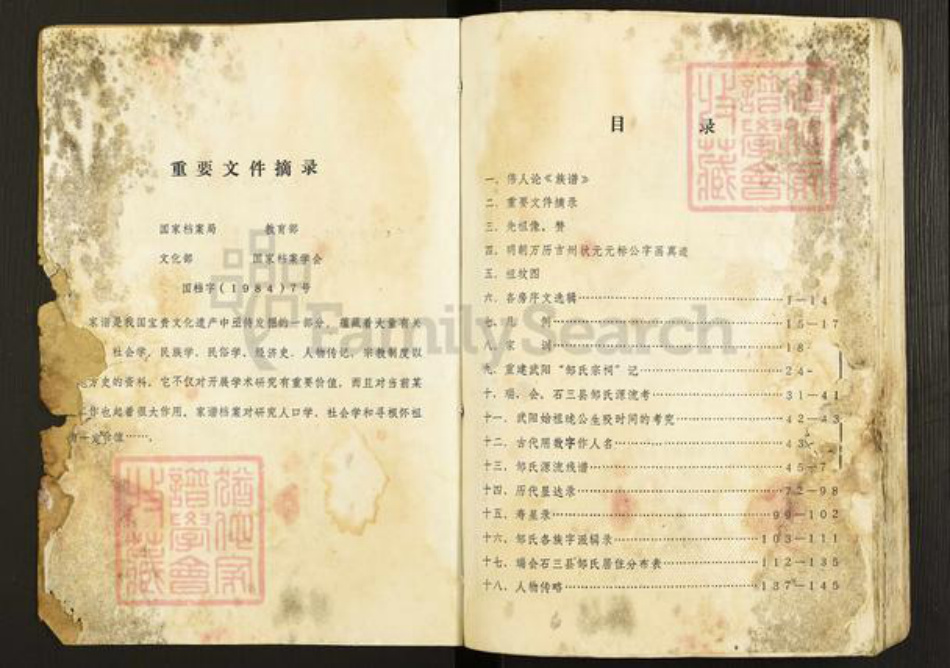 重要文件摘录
国家档案局 教育部
文化部 国家档案学会
国档字(1984)7号
家谱是我国宝贵文化遗产中亟待发掘的一部分，蕴藏着大量有关
社会学，民族学、民俗学、经济史、人物传记、宗教制度以
地方史的资料，它不仅对开展学术研究有重要价值，而且对当前某
工作也起着很大作用。家谱档案对研究人口学、社会学和寻根怀祖
有一定价值……。
目 录
一、伟人论《族谱》
二、重要文件摘录
三、先祖像、赞
四、明朝万历吉州状元元标公字画真迹
五、祖坟图
六、各房序文选辑……1—14
七、凡 例……15—17
八、家 训……18
九、重建武阳“邹氏宗祠”记……24-
十、瑞、会、石三县邹氏源流考……31—41
十一、武阳始祖珑公生殁时间的考究……42—43
十二、古代用数字作人名……43
十三、邹氏源流线谱……45—7
十四、历代显达录……72—98
十五、寿星录……99—102
十六、邹氏各族字派辑录……103—111
十七、瑞会石三县邹氏居住分布表……112—135
十八、人物传略……137—145
FamilySearch